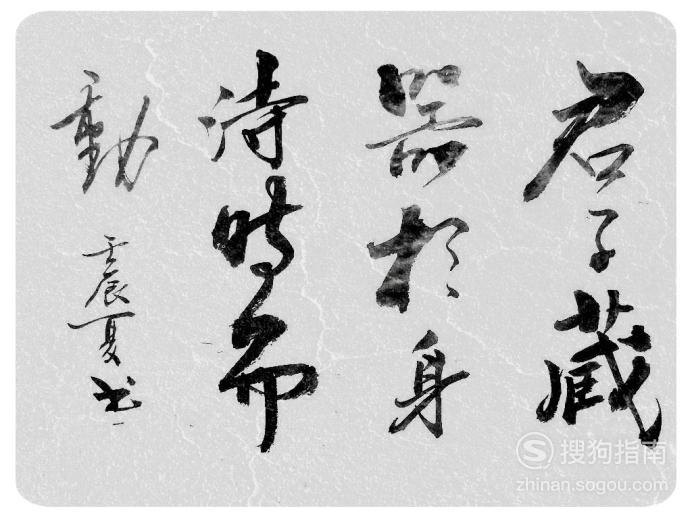 君子藏
器於身
待時而
動
壬辰夏书
搜狗指南
zhinan.sogou.com